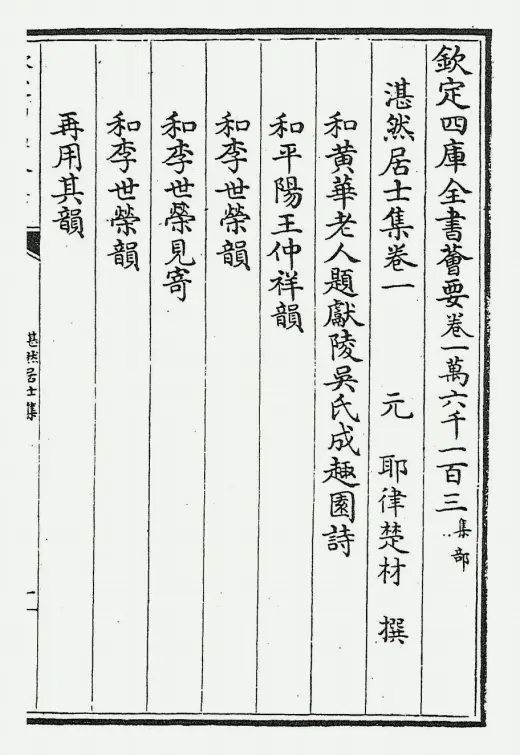 欽定四庫全書薈要卷一萬六千一百三集部
湛然居士集卷一 元 耶律楚材 撰
和黄華老人題獻陵吳氏成趣園詩
和平陽王仲祥韻
和李世榮韻
和李世榮見寄
和李世榮韻
再用其韻
湛然居士集